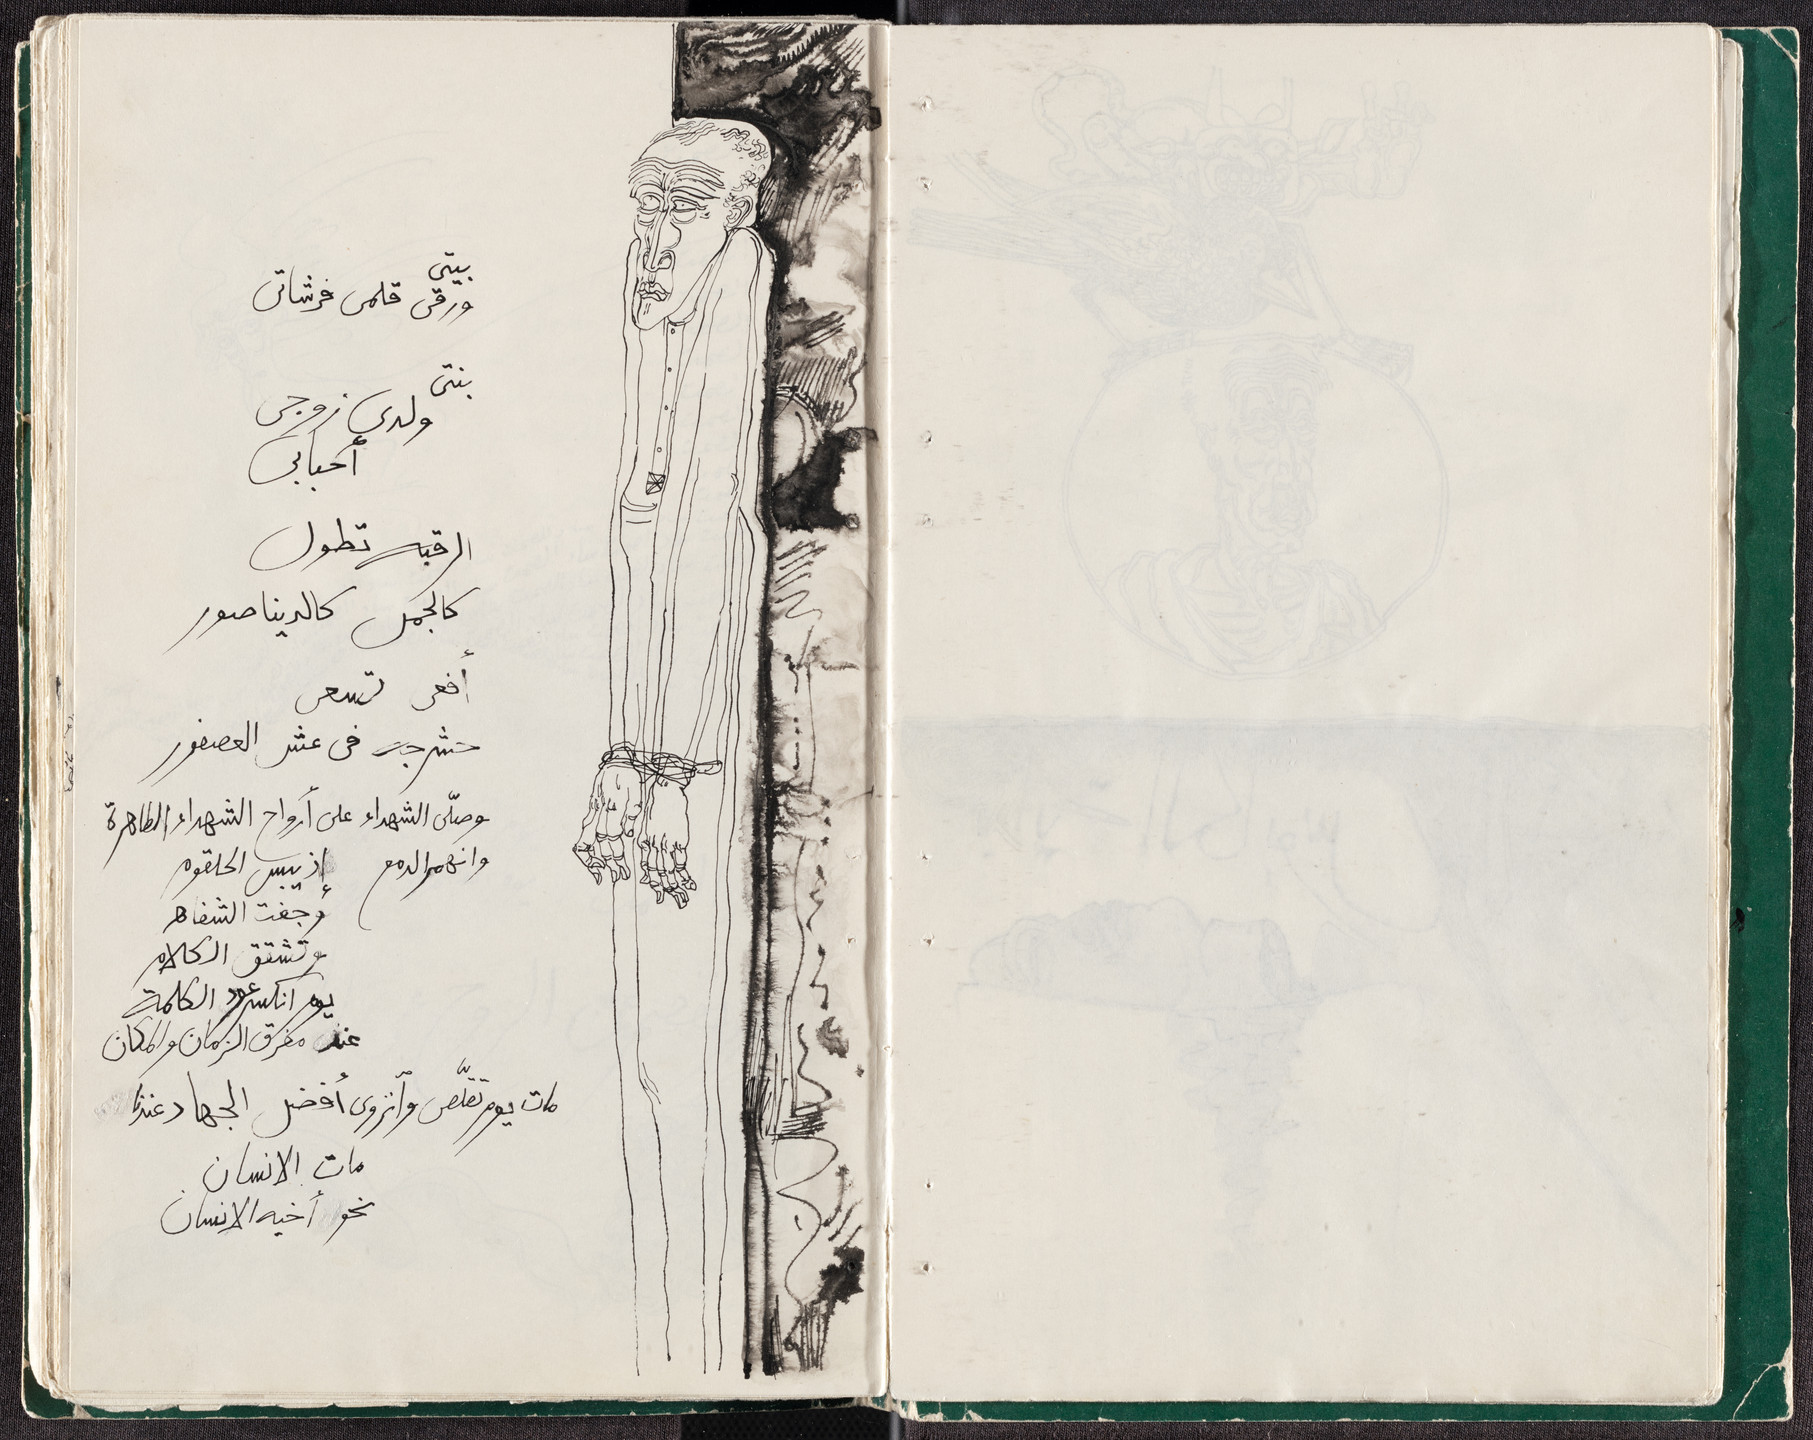 بيتي
ورقي قلمي فرشاتي
بنتي
ولدي زوجي
أحبابي
الرقبه تطول
كالجمل كالديناصور
أفعى تسعى
حشرجه في عش العصفور
وصلّى الشهداء على أرواح الشهداء الطاهرة
وانهمر الدمع إذ يبس الحلقوم
وجفت الشفاه
وتشقق الكلام
يوم انكسر عود الكلمة
عند مفرق الزمان والمكان
مات يوم تقلّص وأنزوى أفضل الجهاد عندنا
مات الانسان
نحو أخيه الانسان